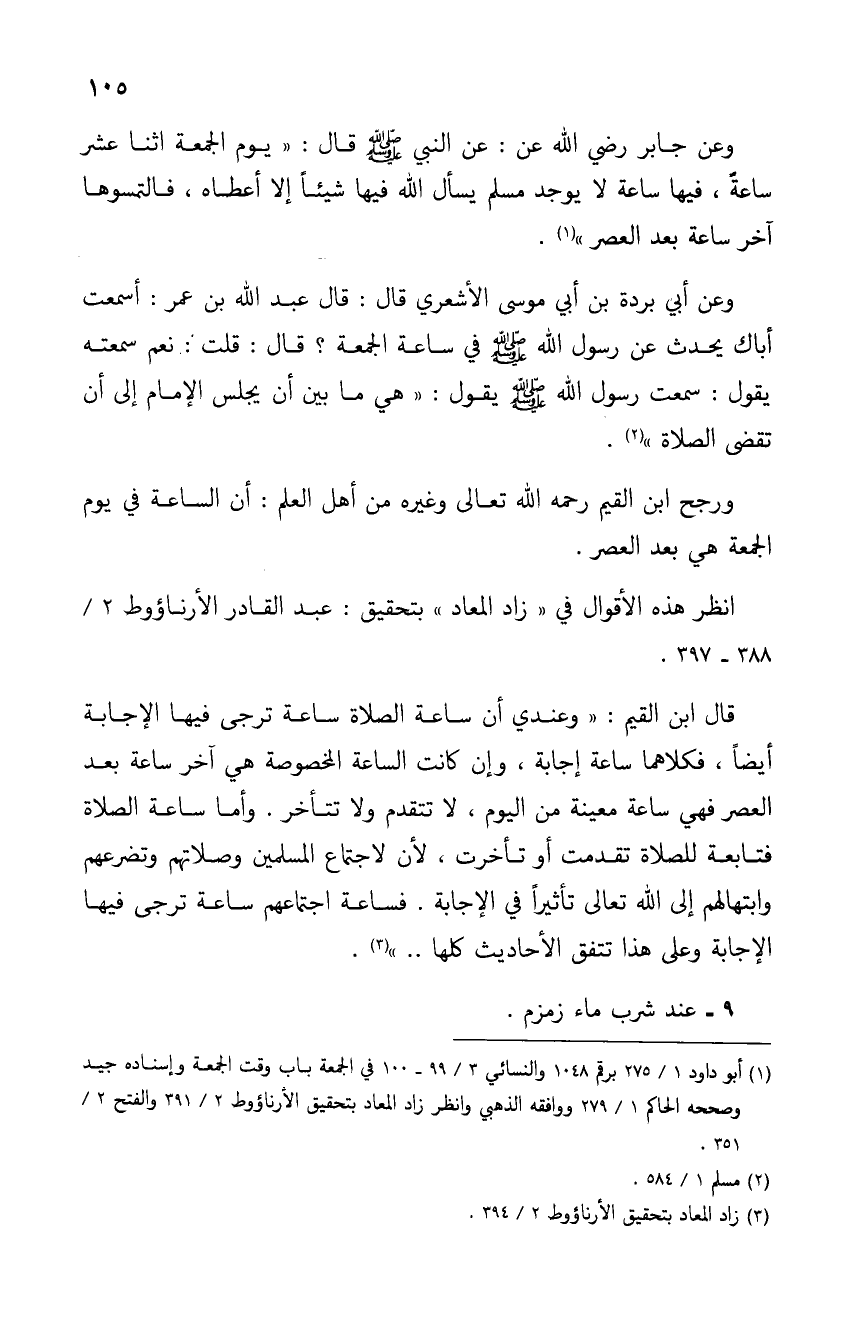 ١٠٥
وعن جابر رضي الله عن : عن النبي ﷺ قال : « يوم الجمعة اثنا عشر
ساعةً ، فيها ساعة لا يوجد مسلم يسأل الله فيها شيئاً إلا أعطاه ، فالتمسوها
آخر ساعة بعد العصر »(١) .
وعن أبي بردة بن أبي موسى الأشعري قال : قال عبد الله بن عمر : أسمعت
أباك يحدث عن رسول الله ﷺ في ساعة الجمعة ؟ قال : قلت : نعم سمعته
يقول : سمعت رسول الله ﷺ يقول : « هي ما بين أن يجلس الإمام إلى أن
تقضى الصلاة »(٢) .
ورجح ابن القيم رحمه الله تعالى وغيره من أهل العلم : أن الساعة في يوم
الجمعة هي بعد العصر .
انظر هذه الأقوال في « زاد المعاد » بتحقيق : عبد القادر الأرناؤوط ٢ /
٣٨٨ ـ ٣٩٧ .
قال ابن القيم : « وعندي أن ساعة الصلاة ساعة ترجى فيها الإجابة
أيضاً ، فكلاهما ساعة إجابة ، وإن كانت الساعة المخصوصة هي آخر ساعة بعد
العصر فهي ساعة معينة من اليوم ، لا تتقدم ولا تتأخر . وأما ساعة الصلاة
فتابعة للصلاة تقدمت أو تأخرت ، لأن لاجتماع المسلمين وصلاتهم وتضرعهم
وابتهالهم إلى الله تعالى تأثيراً في الإجابة . فساعة اجتماعهم ساعة ترجى فيها
الإجابة وعلى هذا تتفق الأحاديث كلها .. »(٣) .
٩ ـ عند شرب ماء زمزم .
(١) أبو داود ١ / ٢٧٥ برقم ١٠٤٨ والنسائي ٣ / ٩٩ ـ ١٠٠ في الجمعة باب وقت الجمعة وإسناده جيد
وصححه الحاكم ١ / ٢٧٩ ووافقه الذهبي وانظر زاد المعاد بتحقيق الأرناؤوط ٢ / ٣٩١ والفتح ٢ /
٣٥١ .
(٢) مسلم ١ / ٥٨٤ .
(٣) زاد المعاد بتحقيق الأرناؤوط ٢ / ٣٩٤ .